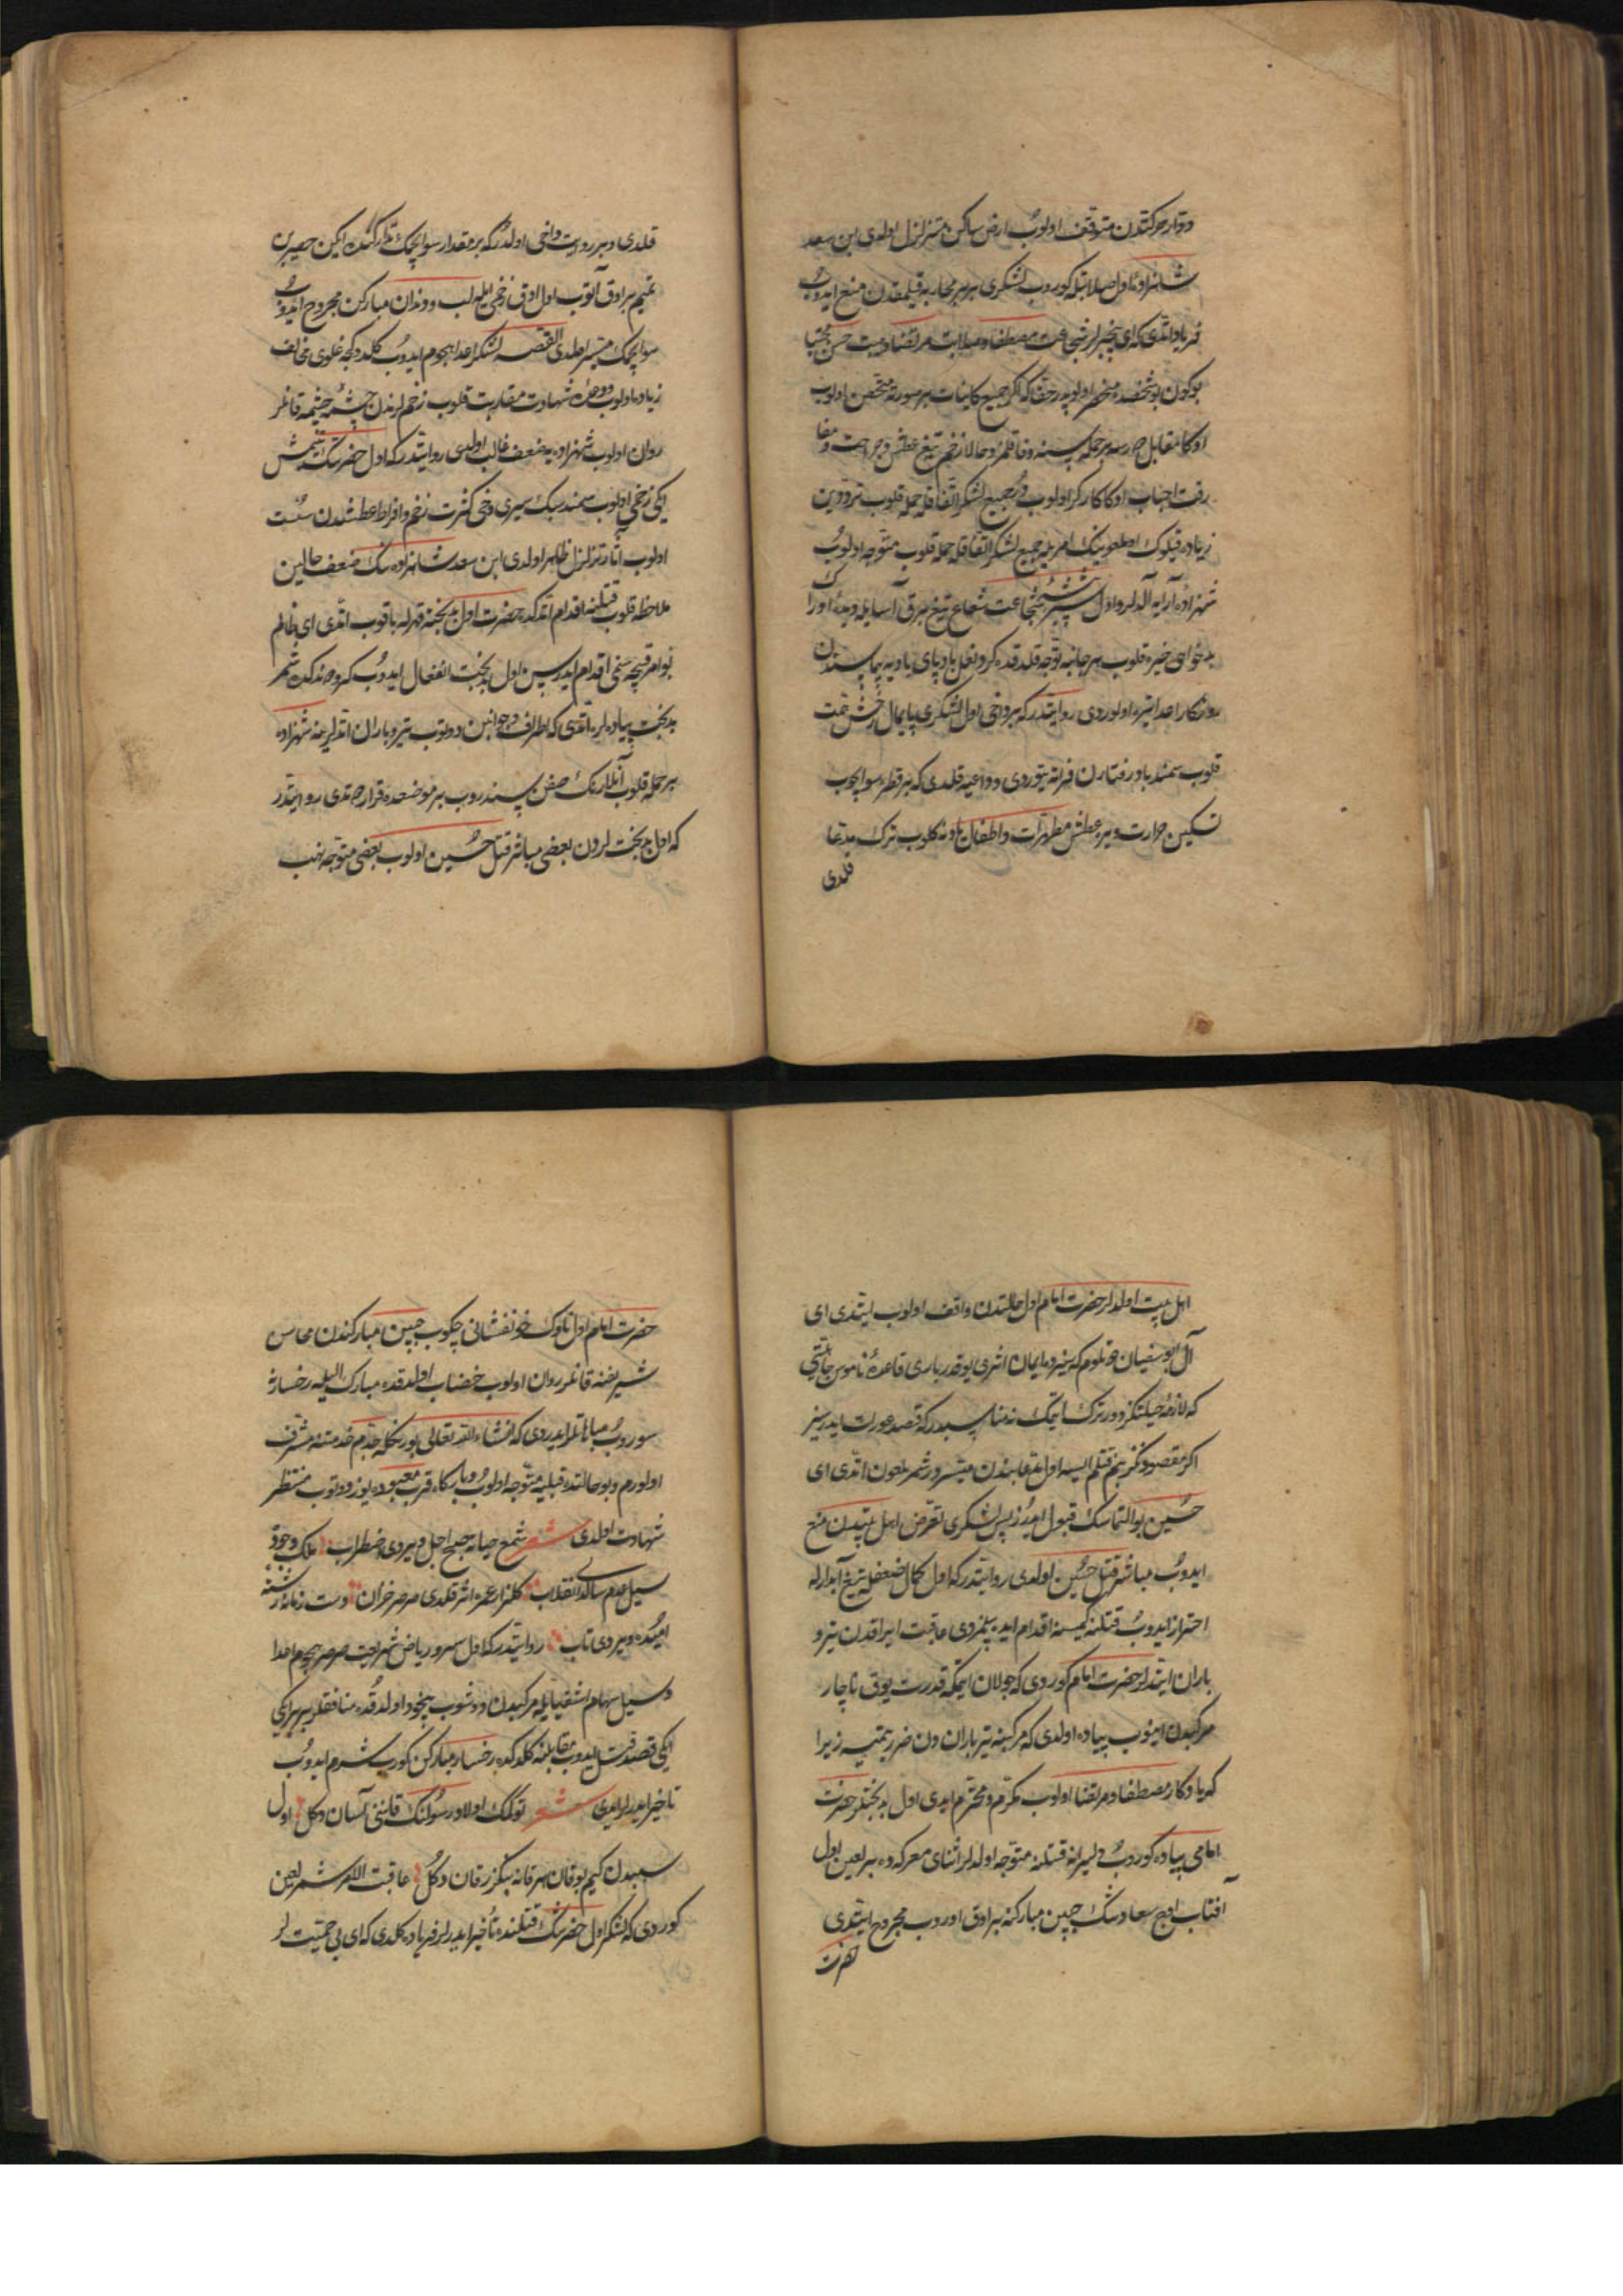 ودوار حركتدن متوقف اولوب ارض ساكن متزلزل اولدى ابن سعد
شاهزاده اول صلابتله كوروب لشكرى بربر محاربه قيلمقدن منع ايدوب
فرياد اتدى كه اى بيخبرلر شجاعت مصطفا وصلابت مرتضا وهيبت حسن مجتبا
بوكون بو شخصده منحصر اولوبدر حقا كه اكر جميع كاينات بر صورته متحصن اولوب
اوكا مقابل اولسه بر حمله سينه وفا قلمز وحالا زخم تيغ عطش وجراحت
رقت احباب اوكا كاركر اولوب دور جميع لشكر اتفاقله حمله قلوب ترددين
زياده قيلوك اول ملعونينك امريله جميع لشكر اتفاقله حمله قلوب متوجه اولوب
شهزاده آرايه آلديلر واول شير بيشه شجاعت شعاع تيغ برق آسايله ديده اورا
بدخواهى خيره قلوب هر جانبه توجه قلدقده كرد نعل بادپاى باديه پيماسيندن
روزكار اعدا تيره اولوردى روايتدر كه بر دخى اول لشكرى پايمال رخش همت
قلوب سمند باد رفتارن فراته يتوردى وداعيه قلدى كه بر قطره سو ايچوب
تسكين حرارت ويره عطش مطهرات واطفال يادنه كلوب ترك مدعا
قلدى
قلدى وبر روايت داخى اولدر كه بر مقدار سو ايچمك تداركنده ايكن حصين بن
تميم بر اوق آتوب اول اوق زخمى ايله لب ودندان مباركن مجروح ايدوب
سو ايچمك ميسر اولمدى القصه لشكر اعدا هجوم ايدوب كلدوكجه غلوى مخالف
زياده اولوب ووعده شهادت مقاربت قلوب زخملرندن چشمه چشمه قانلر
روان اولوب شهزاده يه ضعف غالب اولدى روايتدر كه اول حضرتك يتمش
ايكى زخمى اولوب سمند سبك سيرى دخى كثرت زخم وافراط عطشدن سست
اولوب آثار تزلزل ظاهر اولدى ابن سعد شاهزاده نك ضعف حالين
ملاحظه قلوب قتلينه اقدام اتدكده حضرت اول بدبخته قهرله باقوب اتدى اى ظالم
بو امر قبيحه سنمى اقدام ايدرسين اول بدبخت انفعال ايدوب كيرو دوندكده شمر
بدبخت پياده لره اتدى كه اطراف وجوانبن دوتوب تير باران اتديلر ينه شهزاده
بر حمله قلوب آنلارنك صفن سيندروب بر موضعده قرار طوتدى روايتدر
كه اول بدبختلردن بعضى مباشر قتل حسين اولوب بعضى متوجه نهب
اهل بيت اولديلر حضرت امام اول حالتدن واقف اولوب ايتدى اى
آل ابو سفيان طوتلوم كه سيزده ايمان اثرى يوقدر بارى قاعده ناموس جاهليتى
كه لازمه جبلتكزدور ترك ايتمك نه مناسبدر كه قصد عورات ايدرسيز
اكر مقصودكز بنم قتلم ايسه اول مدعا بندن ميسردر شمر ملعون اتدى اى
حسين بو التماسك قبول ايدرز پس لشكرى تعرض اهل بيتدن منع
ايدوب مباشر قتل حسين اولدى روايتدر كه اول كمال ضعفله تيغ آبدارله
احتراز ايدوب قتلنه كيمسه اقدام ايده بيلمزدى عاقبت ايراقدن تير و
باران ايتديلر حضرت امام كوردى كه جولان ايتمكه قدرت يوق ناچار
مركبدن اينوب پياده اولدى كه مركبنه تير باراندن ضرر يتميه زيرا
كه يادكار مصطفا ومرتضا اولوب مكرم ومحترم ايدى اول بدبختلر حضرت
امامى پياده كوروب دليرانه قتلنه متوجه اولديلر اثناى معركه ده بر لعين اول
آفتاب اوج سعادتك جبين مباركنه بر اوق اوروب مجروح ايتدى
حضرت
حضرت امام اول ناوك خونفشانى چكوب جبين مباركندن محاسن
شريفنه قانلر روان اولوب خضاب اولدقده مبارك اليله رخسارنه
سوروب مباهاتلر ايدردى كه انشاء الله تعالى بو رنكله جدم خدمتنه مشرف
اولورم وبو حالتده قبليه متوجه اولوب وباركاه قرب معبوده يوز دوتوب منتظر
شهادت اولدى شعر شمع حياته صبح اجل ويردى اضطراب ملك وجوده
سيل عدم سالدى انقلاب كلزار عمره اثر قلدى صرصر خزان دست زمانه رشته
اميده ويردى تاب روايتدر كه اول سرو رياض شهادت صرصر هجوم اعدا
وسيل سهام اشقيايله مركبدن دوشوب بيخود اولدقده منافقلر برر ايكى
ايكى قصد قتل ايدوب مقابلنه كلدكده رخسار مباركن كوروب شرم ايدوب
تاخير ايدرلر ايدى شعر توكمك اولاد رسولنك قانينى آسان دكل اول
سببدن كيم بو قان هر قانه بنكزر قان دكل عاقبت الامر شمر لعين
كوردى كه لشكر اول حضرتك قتلنده تأخير ايدرلر فرياده كلدى كه اى بى حميتلر